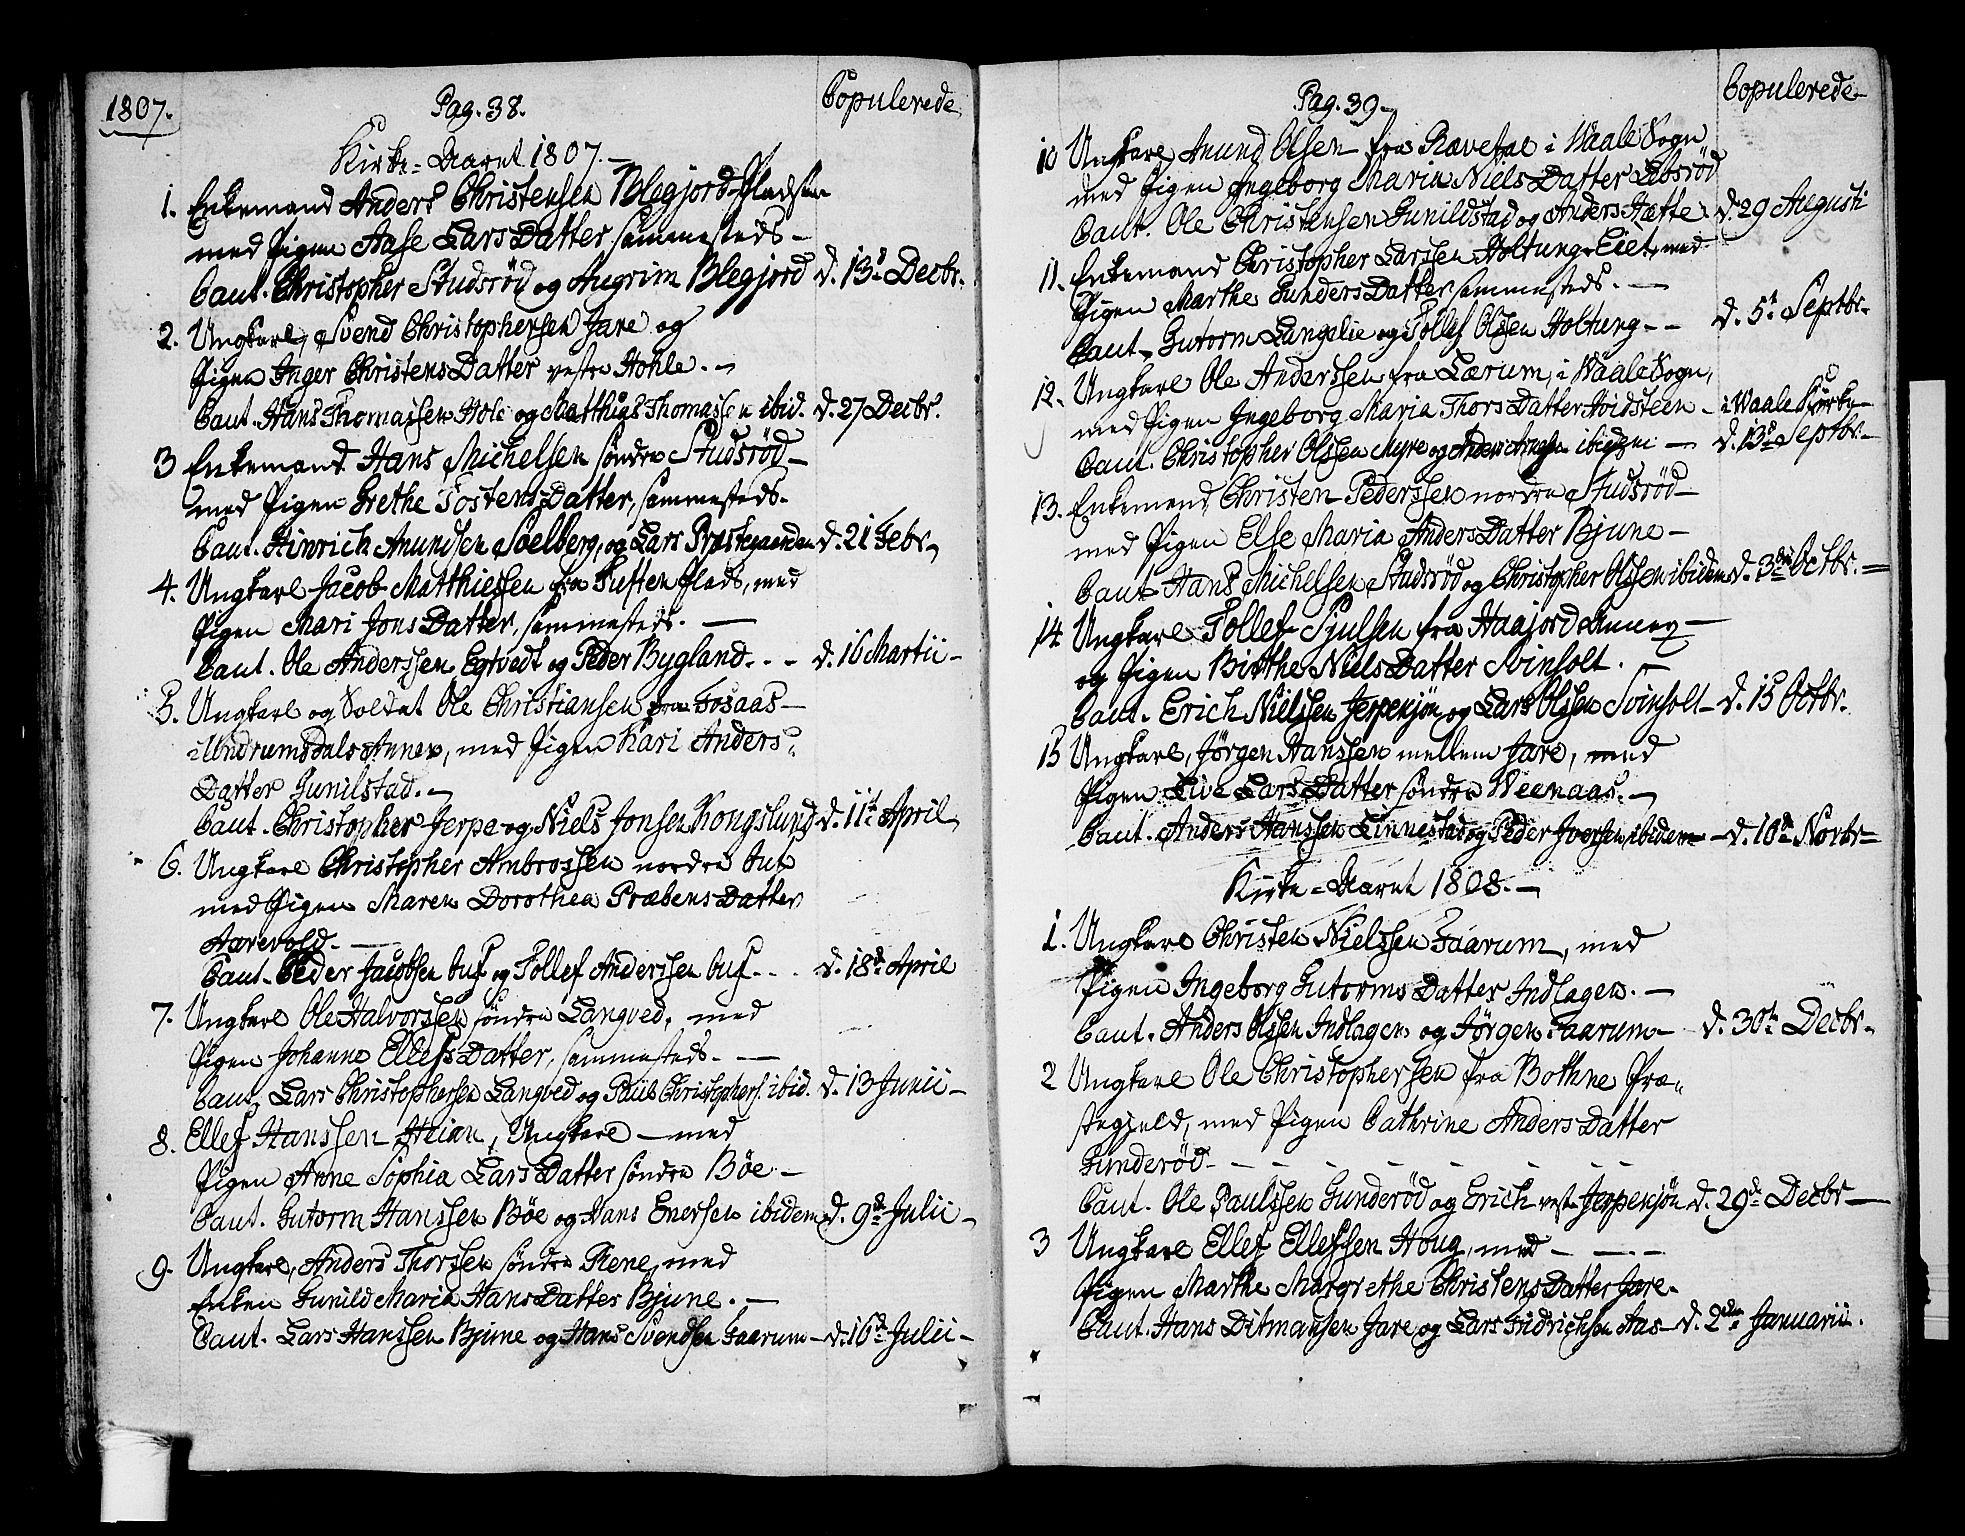 1807.
Pag. 38.
Copulerede
Kirke-Aaret 1807.-
1. Enkemand Anders Christensen Blegjord-Pladsen
med Pigen Aase LarsDatter sammesteds-
Caut. Christopher Studsröd og Augrim Blegjord d. 13de Decbr.
2. Ungkarl, Svend Christophersen Jare og
Pigen Inger ChristensDatter vestre Hohle.-
Caut. Hans Thomassen Hole og Matthias Thomassen ibid. d. 27 Decbr.
3 Enkemand Hans Michelsen söndre Studsröd-
med Pigen Grethe TostensDatter, sammesteds-
Caut. Hinrich Amundsen Soelberg, og Lars Præstegaarden d. 21 Febr.
4. Ungkarl Jacob Matthiessen fra Tuften Plads, med
Pigen Mari JonsDatter, sammesteds.-
Caut. Ole Anderssen Egtvedt og Peder Bygland. - - d. 16 Martii-
5. Ungkarl og Soldat Ole Christiansen fra Fosaas-
i UndrumsdalsAnnex, med Pigen Kari Anders-
Datter Gunilstad.-
Caut. Christopher Jerpe og Niels Jonsen Kongslund d. 11te April
6. Ungkarl Christopher Ambrossen nordre Auf
med Pigen Maren Dorothea PræbensDatter
Aarevold.-
Caut. Peder Jacobsen Auf og Tollef Anderssen Auf. - . d. 18de April
7. Ungkarl Ole Halvorssen söndre Langved, med
Pigen Johanne EllefsDatter, sammesteds.-
Caut. Lars Christophersen Langved og Paul Christophers. ibid. d. 13 Junii-
8. Ellef Hanssen Askian, Ungkarl - med
Pigen Anne Sophia LarsDatter söndre Böe-
Caut. Gutorm Hanssen Böe og Hans Enersen ibidem d. 9de Julii-
9. Ungkarl, Anders Thorssen söndre Rene, med
Enken Gunild Maria HansDatter Bjune.-
Caut. Lars Hanssen Bjune og Hans Svendsen Faarum- d. 16de Julii-
Pag. 39-
Copulerede-
10 Ungkarl Amund Olsen fra Rævetal i Waale Sogn
med Pigen Ingeborg Maria NielsDatter Ebsröd
Caut. Ole Christensen Gunildstad og Anders Hætte d. 29 Augusti
11. Enkemand Christopher Larssen Holtung-Eiet, med
Pigen Marthe GundersDatter sammesteds.-
Caut. Gutorm Langelie og Tollef Olssen Holtung-- d. 5te Septbr.
12. Ungkarl Ole Anderssen fra Lærum, i Waale Sogn,
med Pigen Ingeborg Maria ThorsDatter Hvidsteen- i Waale Kirke
Caut. Christopher Olssen Myre og Anders ibidem - d. 13de Septbr-
13. Enkemand Christen Pederssen nordre Studsröd-
med Pigen Else Maria AndersDatter Bjune-
Caut Hans Michelssen Studsröd og Christopher Olssen ibidem d. 3die Octbr.
14 Ungkarl Tollef Sjulsen fra Haajord Annex-
og Pigen Birthe NielsDatter Svinholt.-
Caut. Erich Nielssen Jerpenjön og Lars Olssen Svinholt- d. 15 Octbr.
15 Ungkarl, Jörgen Hanssen mellem Jare, med
Pigen Live LarsDatter söndre Weenaas.-
Caut. Anders Hanssen Linnestad og Peder Iversen ibidem - d. 10de Novbr-
Kirke-Aaret 1808.-
1. Ungkarl Christen Nielssen Faarum, med
Pigen Ingeborg GutormsDatter Indlagen.-
Caut. Anders Olssen Indlagen og Jörgen Faarum- d. 30te Decbr-
2 Ungkarl Ole Christophersen fra Bothne Præ-
stegjeld, med Pigen Cathrine AndersDatter
Gunderöd-
Caut. Ole Paulssen Gunderöd og Erich vest. Jerpenjön d. 29de Decbr-
3 Ungkarl Ellef Ellefssen Houg, med-
Pigen Marthe Margrethe ChristensDatter Jare.
Caut. Hans Ditmansen Jare og Lars Fridrichsen Aas- d. 2den Januarii.